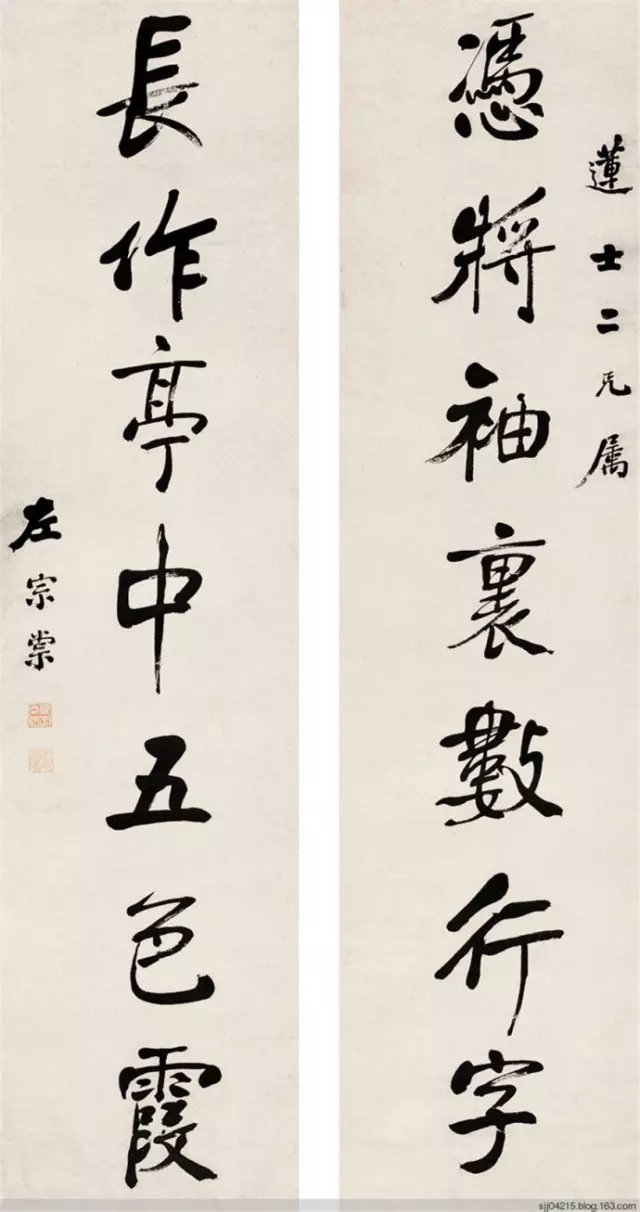 蓮士二兄属
憑將袖裏數行字
長作亭中五色霞
左宗棠
sjj04215.blog.163.com